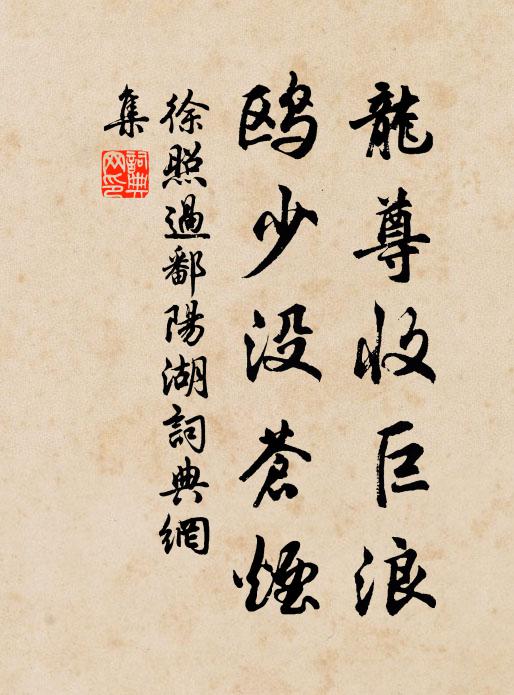 龍尊收巨浪
鸥少没蒼煙
徐照過鄱陽湖詞典網
集
詞典
网印